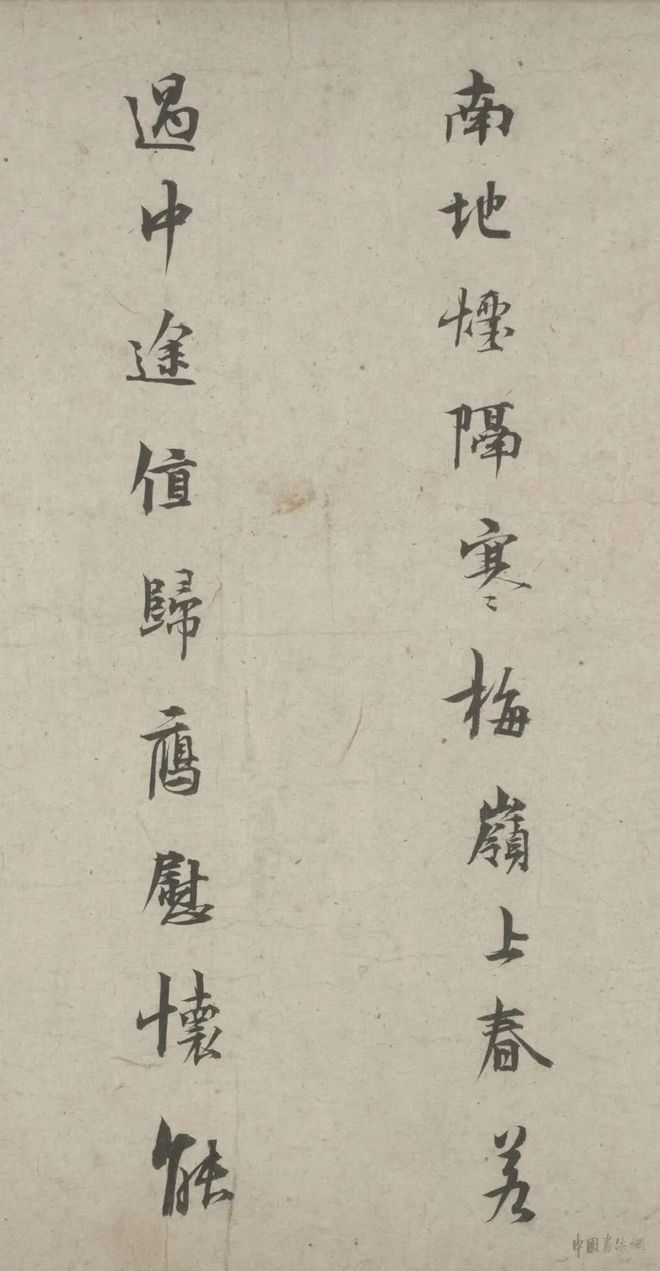 南地煙隔寒梅嶺上春若
過中途值歸鴈慰懷能
中國書法網